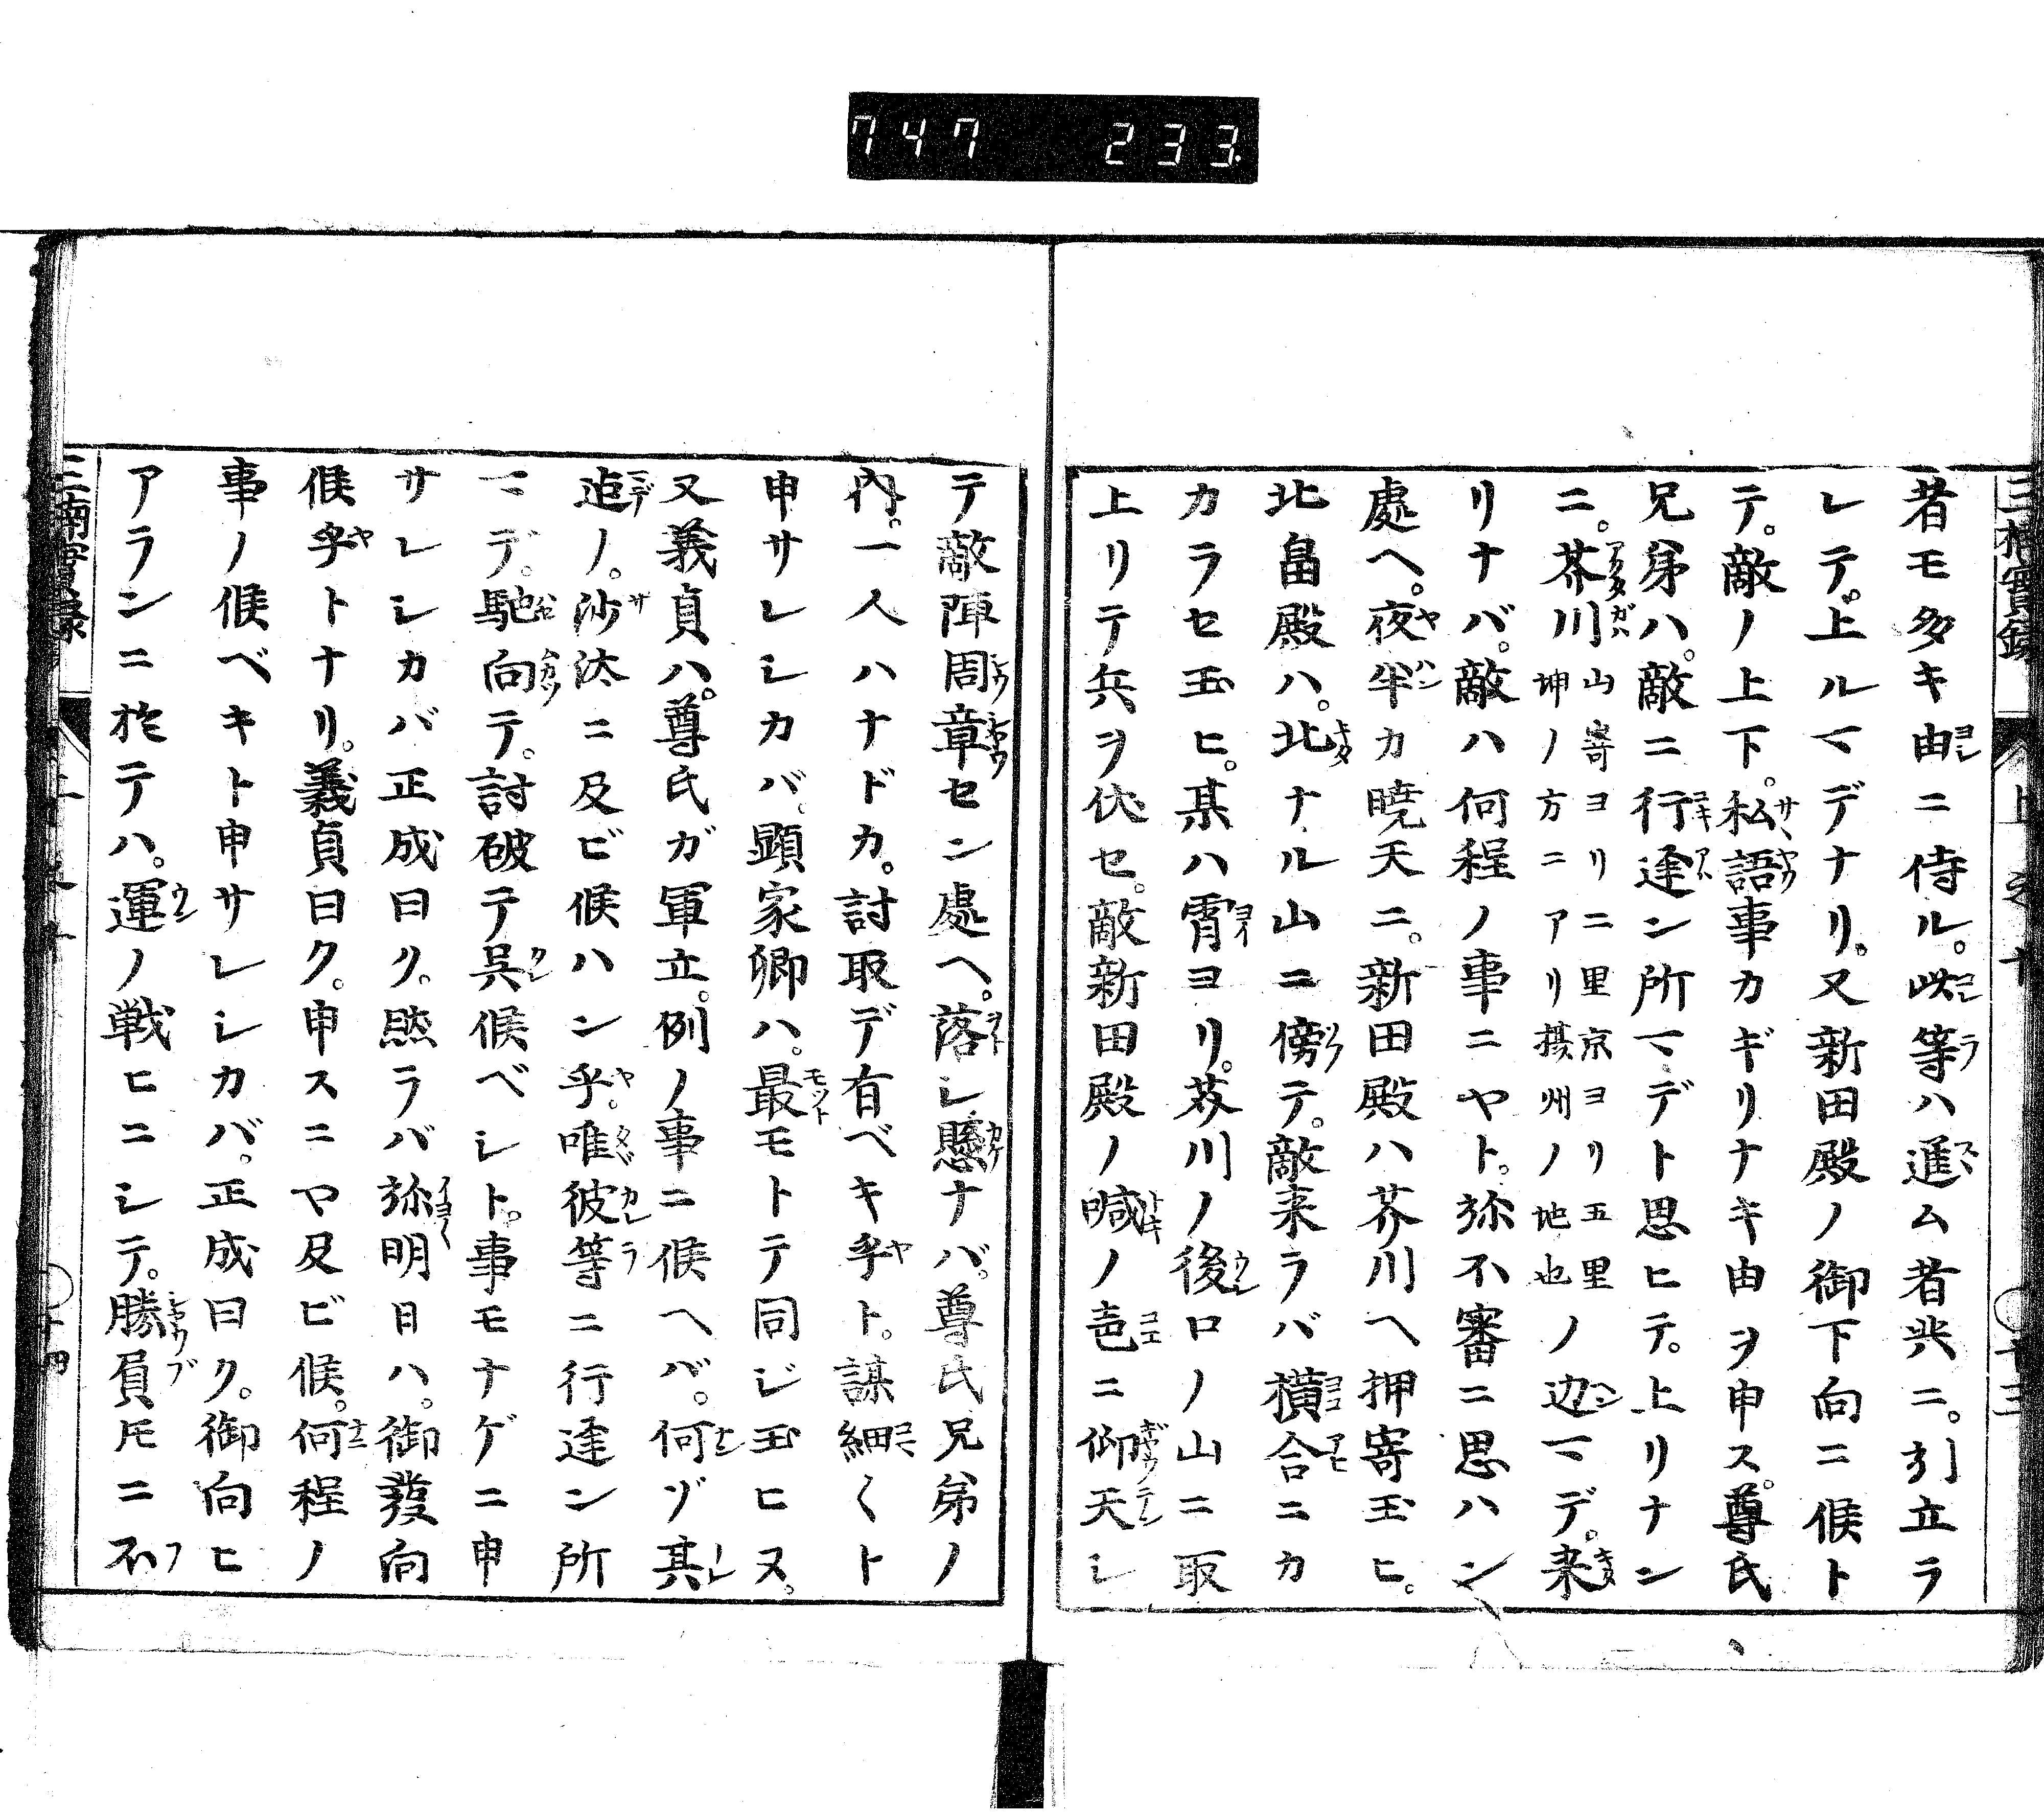 747 233
者モ多キ由ニ侍ル。此等ハ進ム者共ニ。引立ラ
レテ。上ルマデナリ。又新田殿ノ御下向ニ候ト
テ。敵ノ上下。私語事カギリナキ由ヲ申ス。尊氏
兄弟ハ。敵ニ行逢ン所マデト思ヒテ。上リナン
ニ。芥川山嵜ヨリ二里京ヨリ五里坤ノ方ニアリ摂州ノ地也ノ辺マデ。来
リナバ。敵ハ何程ノ事ニヤト。弥不審ニ思ハン
處ヘ。夜半カ暁天ニ。新田殿ハ芥川ヘ押寄玉ヒ。
北畠殿ハ。北ナル山ニ傍テ。敵来ラバ横合ニカ
カラセ玉ヒ。某ハ宵ヨリ。芥川ノ後ロノ山ニ取
上リテ兵ヲ伏セ。敵新田殿ノ喊ノ声ニ仰天シ
テ敵陣周章セン處ヘ。落シ懸ナバ。尊氏兄弟ノ
内。一人ハナドカ。討取デ有ベキ乎ト。謀細〱ト
申サレシカバ。顕家卿ハ。最モトテ同ジ玉ヒヌ。
又義貞ハ。尊氏ガ軍立。例ノ事ニ候ヘバ。何ゾ其
迠ノ。沙汰ニ及ビ候ハン乎。唯彼等ニ行逢ン所
マデ。馳向テ。討破テ呉候ベシト。事モナゲニ申
サレシカバ正成曰ク。然ラバ弥明日ハ。御発向
候乎トナリ。義貞曰ク。申スニヤ及ビ候。何程ノ
事ノ候ベキト申サレシカバ。正成曰ク。御向ヒ
アランニ於テハ。運ノ戦ヒニシテ。勝負圧ニ不